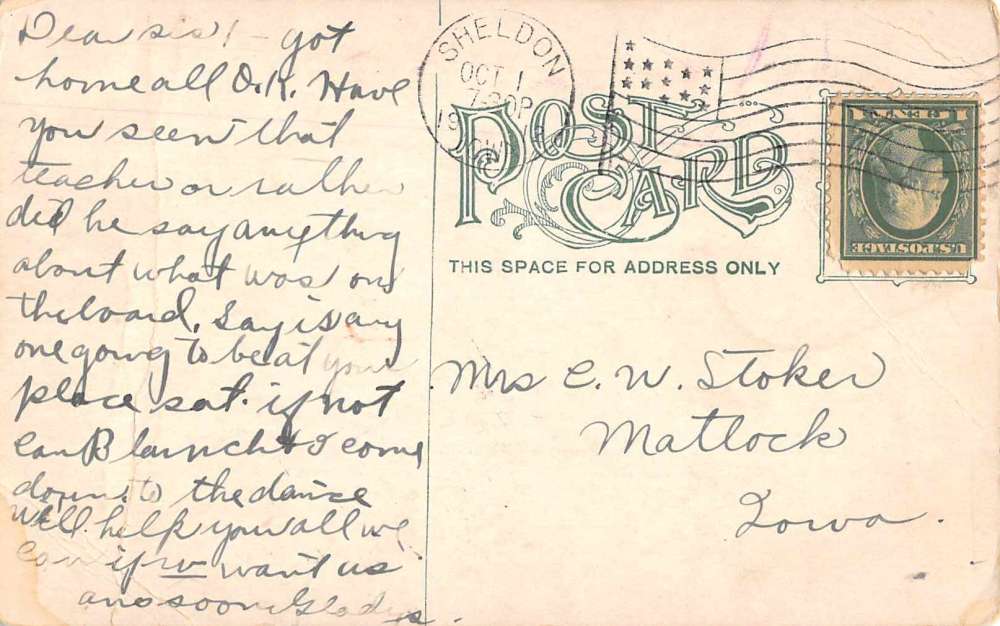 Dear sis! - got
home all O.K. Have
you seen that
teacher or rather
did he say anything
about what was on
the board. Say is any
one going to be at your
place sat. if not
can Blanch & I come
down to the dance
We'll help you all we
can if u want us
ans soon Gladys.
SHELDON
OCT 1
7 30 P
19
IOWA
POST CARD
THIS SPACE FOR ADDRESS ONLY
1 CENT 1
U.S. POSTAGE
Mrs C. W. Stoker
Matlock
Iowa.